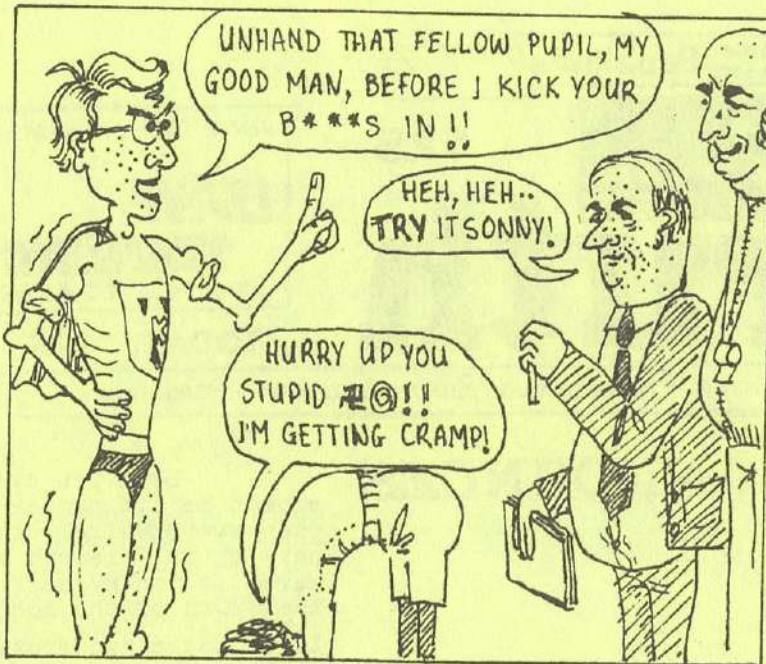 UNHAND THAT FELLOW PUPIL, MY
GOOD MAN, BEFORE I KICK YOUR
B****S IN!!
HEH, HEH..
TRY IT SONNY!
HURRY UP YOU
STUPID #@!!
I'M GETTING CRAMP!